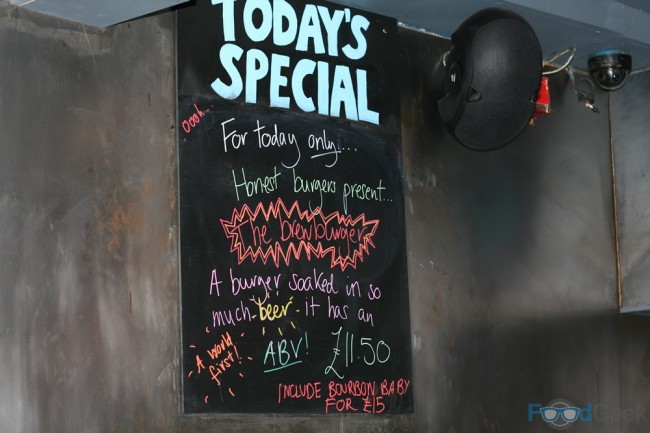 TODAY'S
SPECIAL
oooh...
For today only....
Honest burgers present...
The brewburger
A burger soaked in so
much beer it has an
A world
first!
ABV!
£11.50
INCLUDE BOURBON BABY
FOR £15
FoodGeek